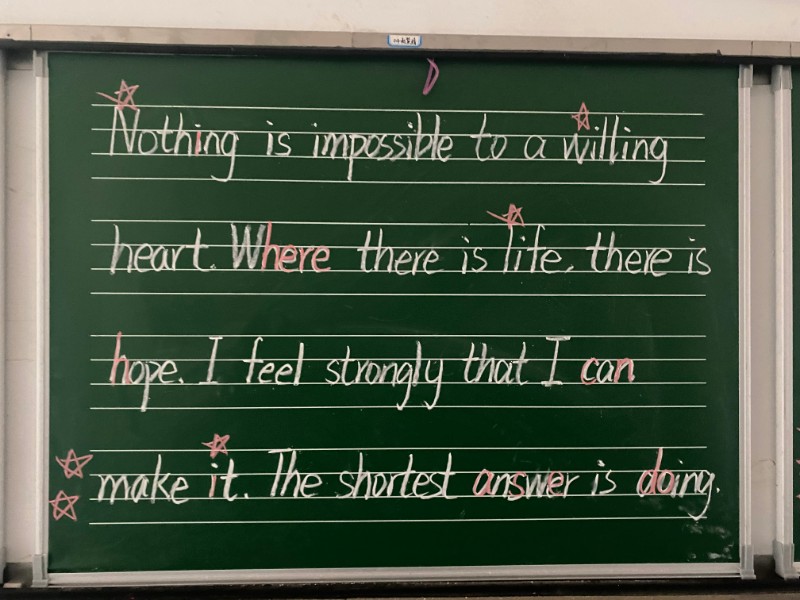 D
Nothing is impossible to a willing
heart. Where there is life, there is
hope. I feel strongly that I can
make it. The shortest answer is doing.